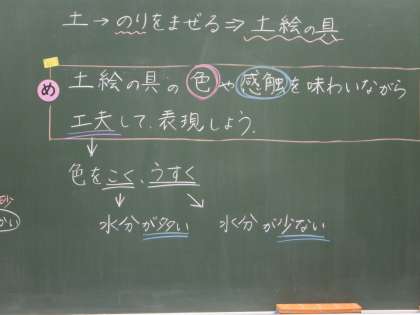 土→のりをまぜる⇒土絵の具
め 土絵の具の色や感触を味わいながら
工夫して、表現しよう。
色をこく、うすく
水分が多い 水分が少ない